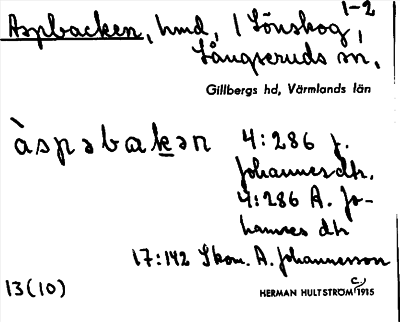 1-2
Aspbacken, hmd, / Lönskog,
Långseruds sn,
Gillbergs hd, Värmlands län
àspəbakən 4:286 J.
Johannes dtr.
4:286 A. Jo-
hannes dtr
17:142 Skom. A. Johannesson
13(10) HERMAN HULTSTRÖM 1915